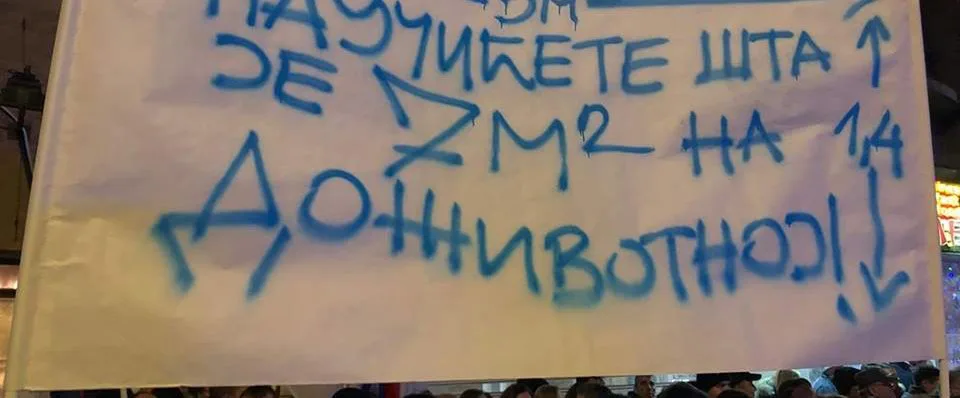 НАУЧИЋЕТЕ ШТА ↑
ЈЕ 7м² НА 1,4
ДОЖИВОТНОЈ! ↓